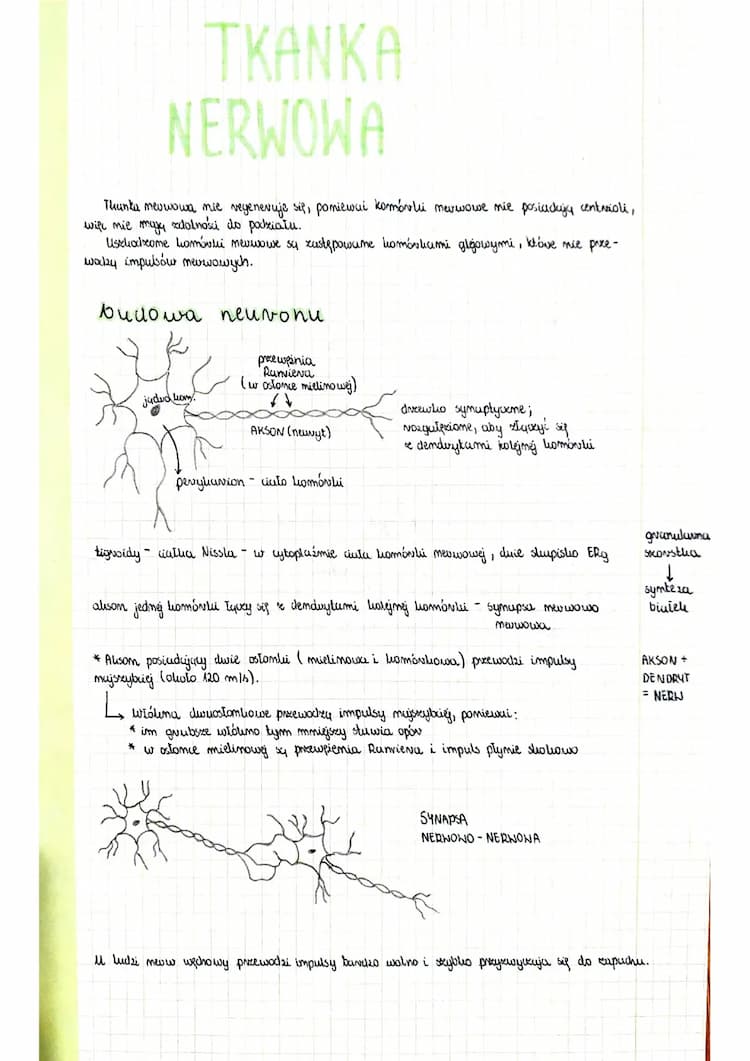 TKANKA
NERWOWA
Tkanka nerwowa nie regeneruje się, ponieważ komórki nerwowe nie posiadają centrioli,
więc nie mają zdolności do podziału.
Uszkodzone komórki nerwowe są zastępowane komórkami glejowymi, które nie prze-
wodzą impulsów nerwowych.
budowa neuronu
przewężnia
Ranviera
(w osłonie mielinowej)
jądro kom.
AKSON (neuryt)
drzewko synaptyczne;
rozgałęzione, aby złączyć się
z dendrytami kolejnej komórki
perykarion - ciało komórki
tigroidy - ciałka Nissla - w cytoplaźmie ciała komórki nerwowej, duże skupisko ERg
granularna
szorstka
↓
synteza
białek
akson jednej komórki łączy się z dendrytami kolejnej komórki - synapsa nerwowo
nerwowa
* Akson posiadający dwie osłonki (mielinowa i komórkowa) przewodzi impulsy
najszybciej (około 120 m/s).
AKSON +
DENDRYT
= NERW
↳ Włókna dwuosłonkowe przewodzą impulsy najszybciej, ponieważ:
* im grubsze włókno tym mniejszy stawia opór
* w osłonce mielinowej są przewężenia Ranviera i impuls płynie skokowo
SYNAPSA
NERWOWO - NERWOWA
U ludzi nerw węchowy przewodzi impulsy bardzo wolno i szybko przyzwyczaja się do zapachu.